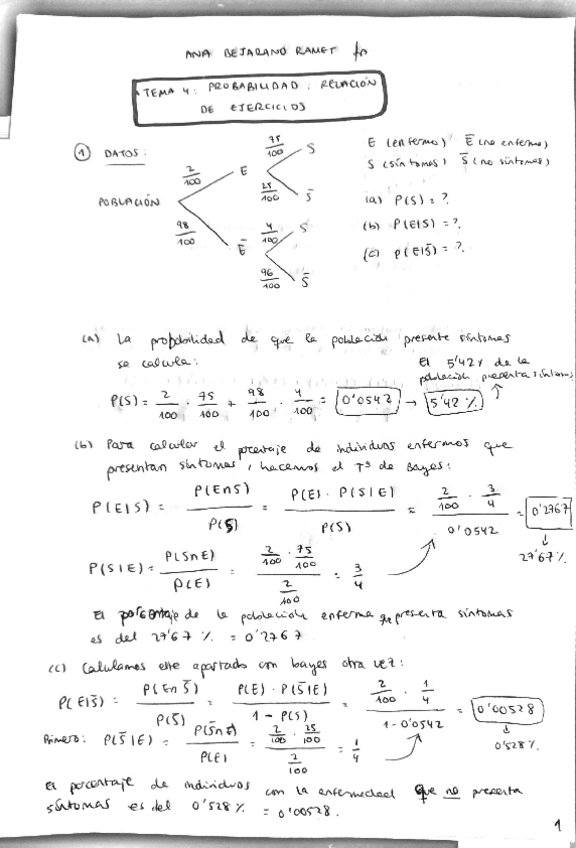 ANA BEJARANO RAMET
TEMA 4: PROBABILIDAD. RELACIÓN
DE EJERCICIOS
① DATOS:
E (enfermo) Ē (no enfermo)
S (síntomas) S̄ (no síntomas)
POBLACIÓN
2/100 E 75/100 S
25/100 S̄
98/100 Ē 4/100 S
96/100 S̄
(a) P(S) = ?
(b) P(E|S) = ?
(c) P(E|S̄) = ?
(a) La probabilidad de que la población presente síntomas
se calcula:
El 5'42% de la
población presenta síntomas
P(S) = 2/100 · 75/100 + 98/100 · 4/100 = 0'0542 → 5'42 %.
(b) Para calcular el porcentaje de individuos enfermos que
presentan síntomas, hacemos el Tª de Bayes:
P(E|S) = P(E∩S)/P(S) = P(E) · P(S|E)/P(S) = 2/100 · 3/4 / 0'0542 = 0'2767
↓
27'67 %.
P(S|E) = P(S∩E)/P(E) = 2/100 · 75/100 / 2/100 = 3/4
El porcentaje de la población enferma que presenta síntomas
es del 27'67 %. = 0'2767
(c) Calulamos este apartado con bayes otra vez:
P(E|S̄) = P(E∩S̄)/P(S̄) = P(E) · P(S̄|E)/1 - P(S) = 2/100 · 1/4 / 1 - 0'0542 = 0'00528
↓
0'528 %.
Primero: P(S̄|E) = P(S̄∩E)/P(E) = 2/100 · 25/100 / 2/100 = 1/4
El porcentaje de individuos con la enfermedad que no presenta
síntomas es del 0'528 % = 0'00528.
1